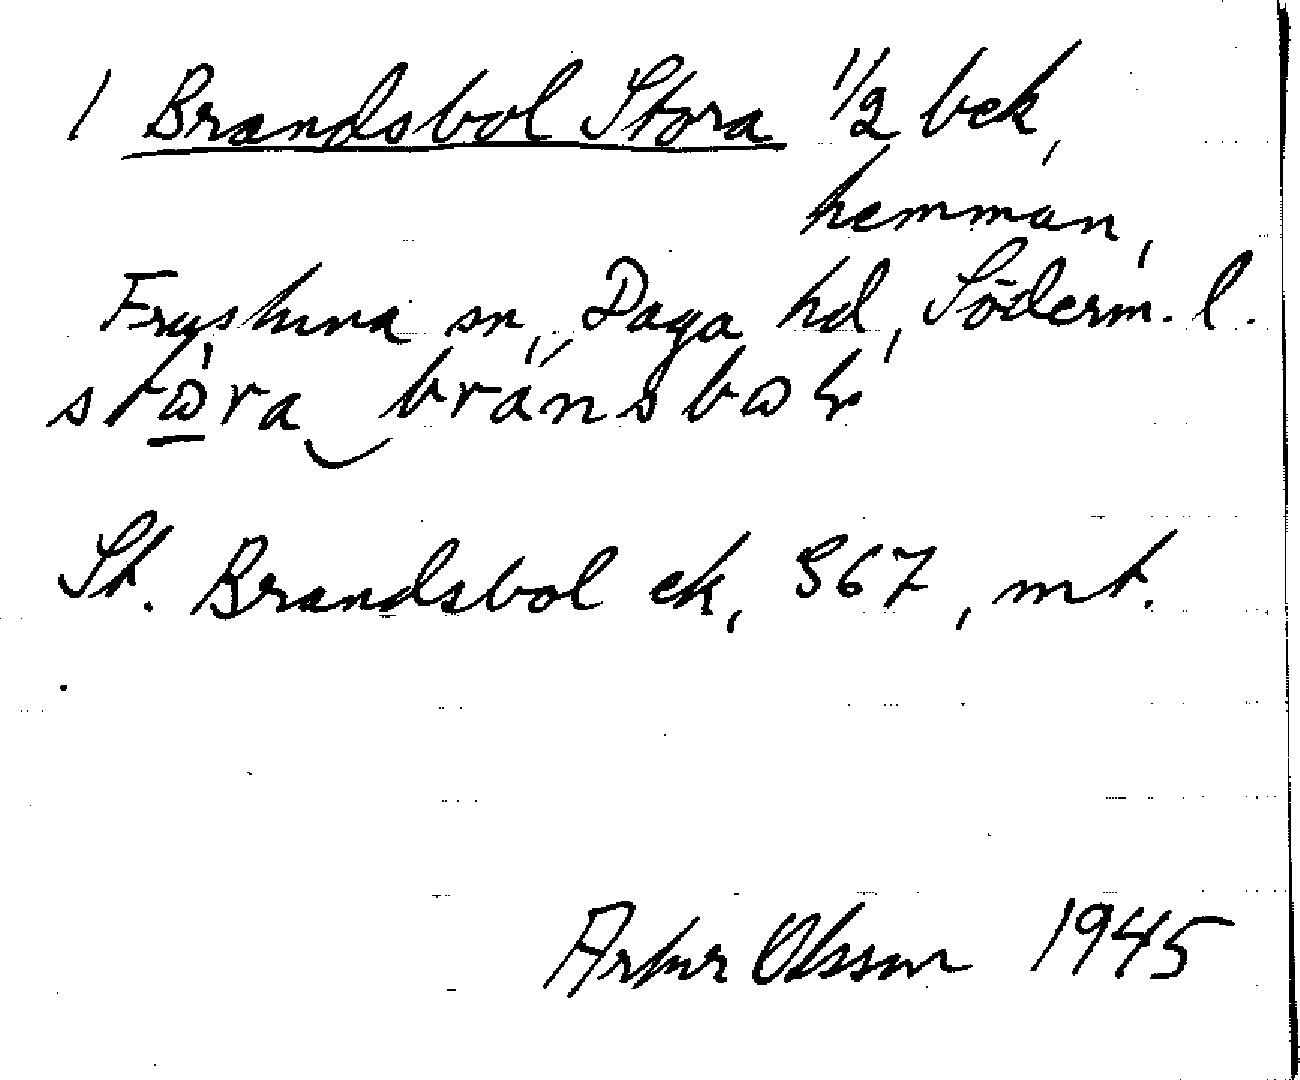 1 Brandsbol Stora 1/2 bek,
hemman,
Frustuna sn, Daga hd, Söderm. l.
St. Brandsbol ek, 567, mt.
Artur Olsson 1945